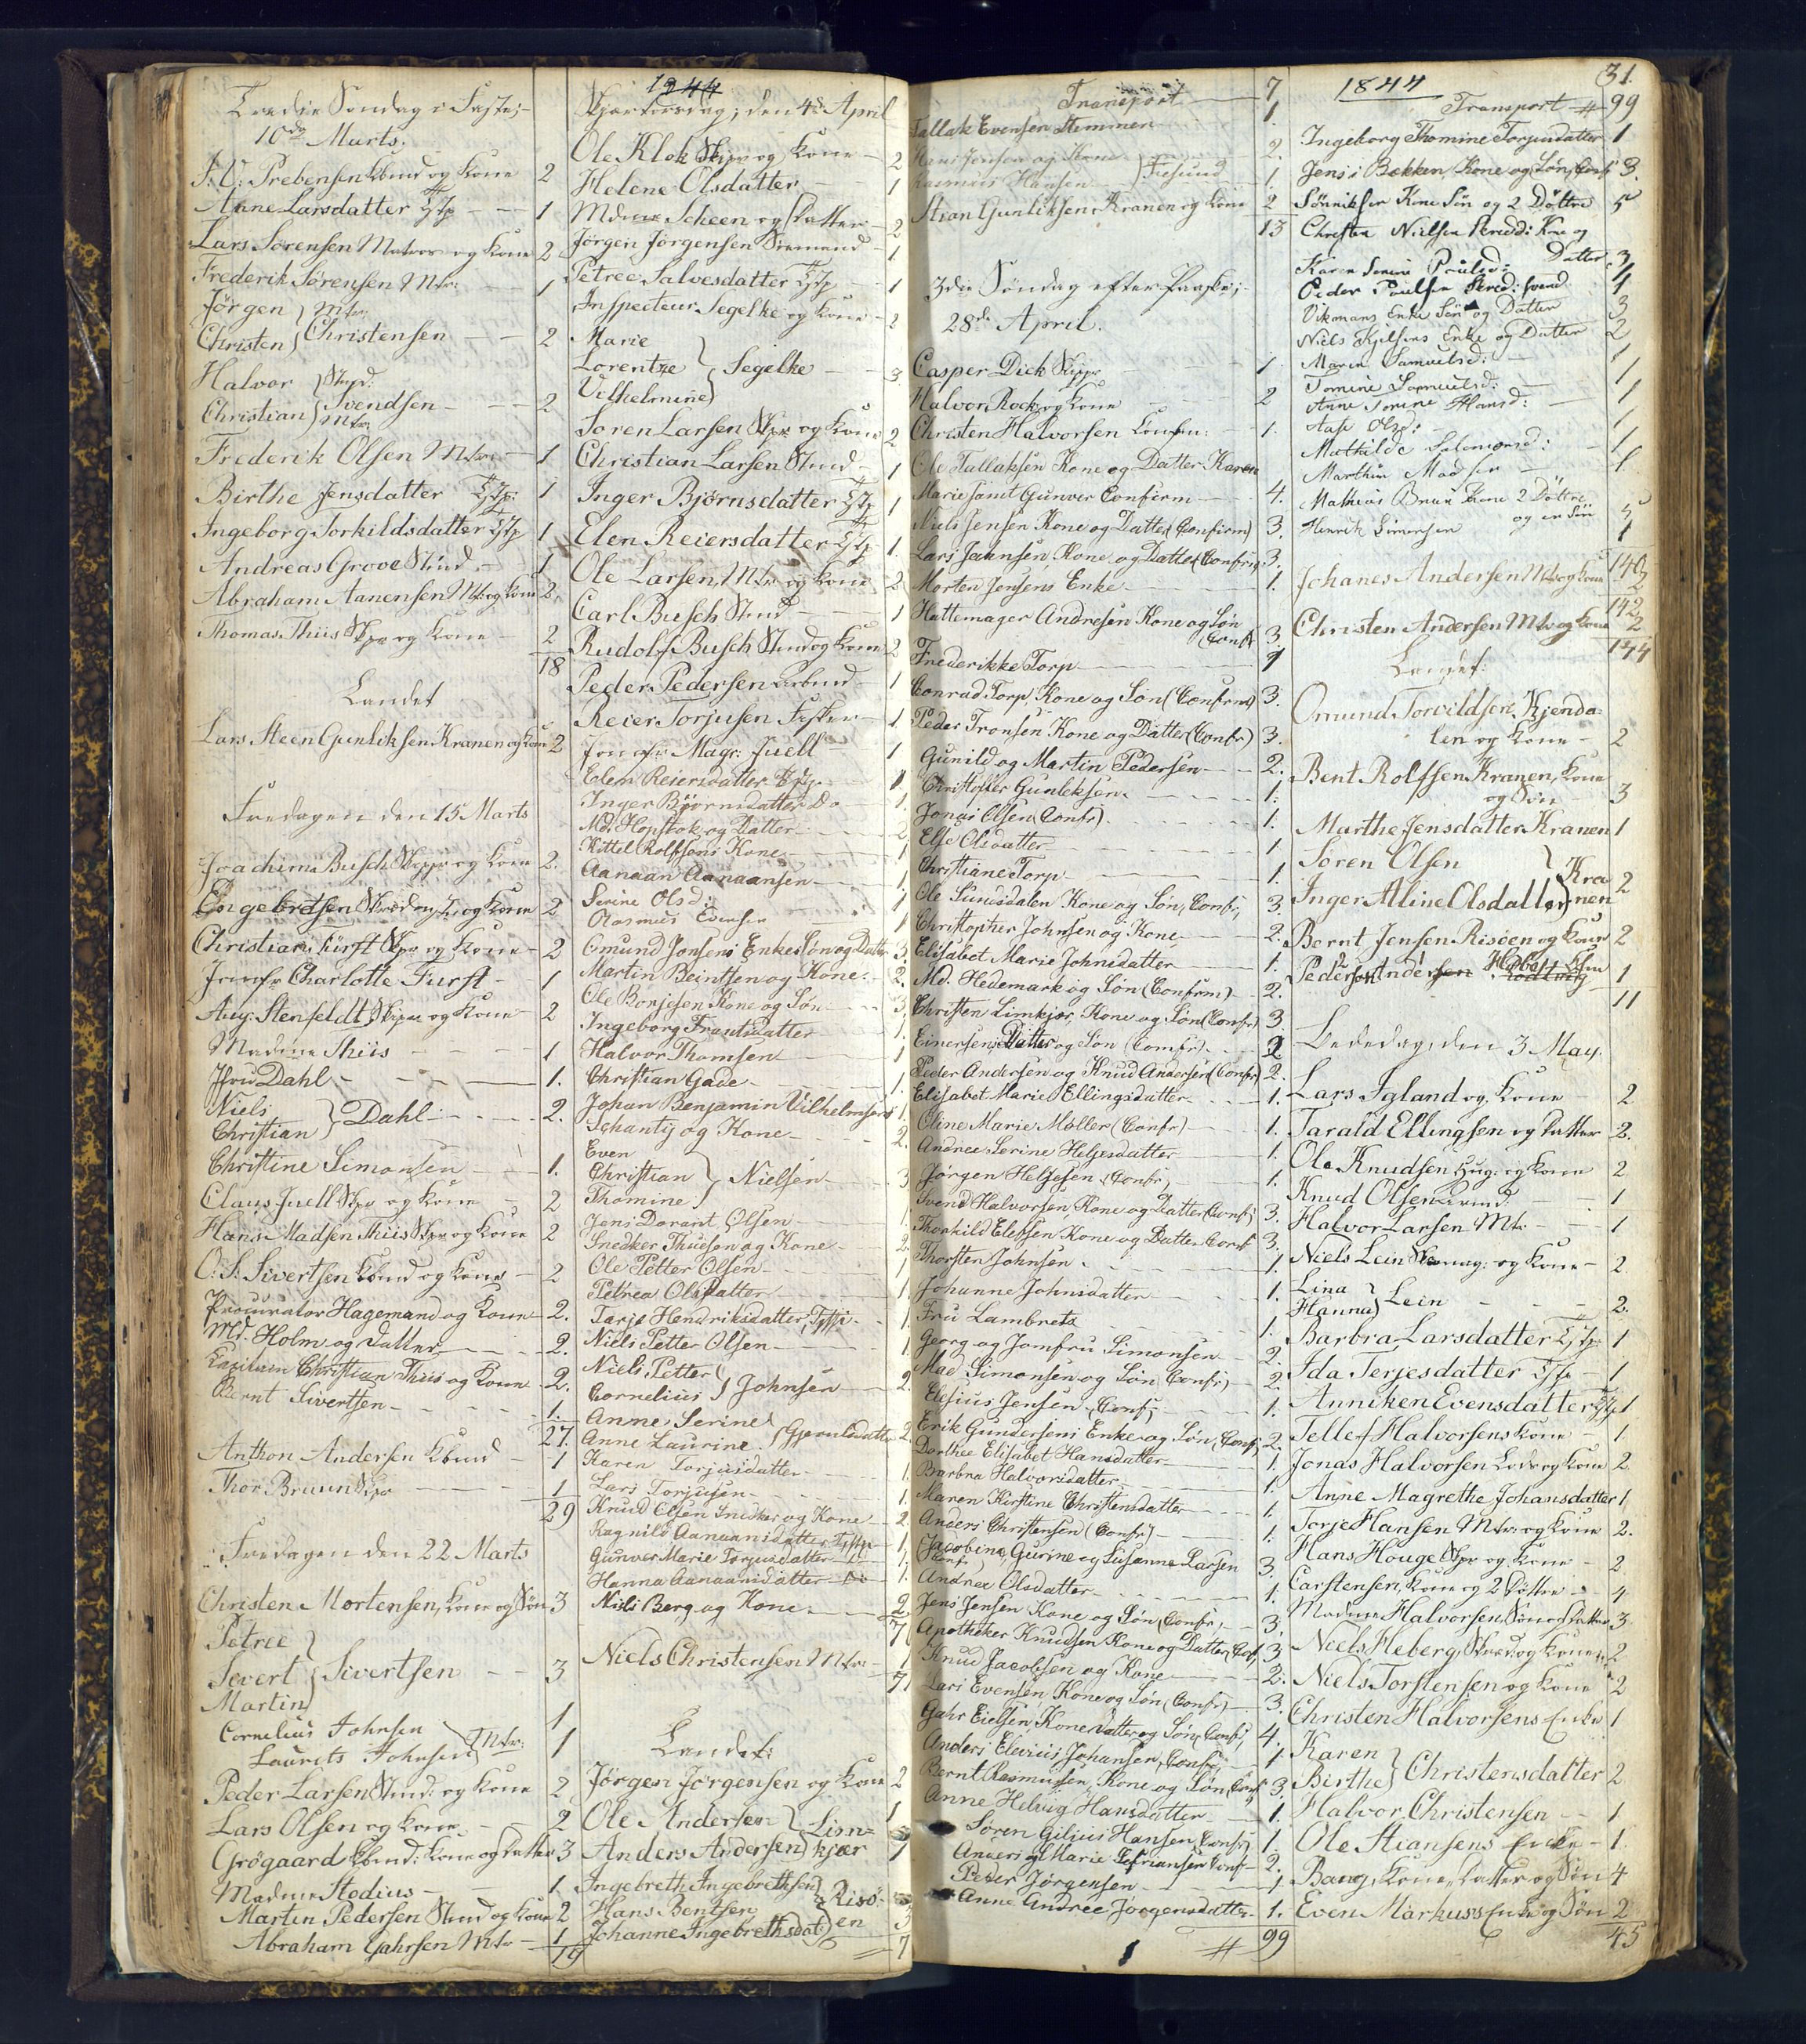 1844
Tredie Søndag i Faste;
10de Marts.
F. C. Prebensen Kbmd og Kone 2
Anne Larsdatter Tjtp 1
Lars Sørensen Matros og Kone 2
Frederik Sørensen Mtr. 1
Jørgen } Mtr.
Christen } Christensen 2
Halvor } Skpd:
Christian } Svendsen 2
Mtr.
Frederik Olsen Mtr. 1
Birthe Jensdatter Tjtp: 1
Ingeborg Torkildsdatter Tjtp 1
Andreas Grove Stmd. 1
Abraham Aanensen Mtr og Kone 2
Thomas Thiis Skpr og Kone 2
18
Landet
Lars Steen Gunliksen Kranen og Kone 2
Fredagen den 15 Marts
Joachim Busch Skppr og Kone 2.
Engebretsen Skrædm. og Kone 2
Christian Fürst Skpr og Kone 2
Jomfr Charlotte Fürst 1
Aug: Stenfeldt, Skipr og Kone 2
Madme Thiis 1
Jfru Dahl 1.
Niels
Christian } Dahl 2.
Christine Simonsen 1.
Claus Juell Skpr og Kone 2
Hans Madsen Thiis Skpr og Kone 2
O. S. Sivertsen Kbmd og Kone 2
Procurator Hagemand og Kone 2.
Md. Holm og Datter 2.
Kapitain Christian Thiis og Kone 2.
Bernt Sivertsen 1.
27.
Anthon Andersen Kbmd 1
Thor Bruun Skpr 1
29
Fredagen den 22 Marts
Christen Mortensen, Kone og Søn 3
Petree
Severt } Sivertsen 3
Martin
Cornelius Johnsen 1
Laurits Johnsen } Mtr: 1
Peder Larsen Stmd: og Kone 2
Lars Olsen og Kone 2
Grøgaard Kbmd: Kone og Datter 3
Madme Stodius 1
Martin Pedersen Stmd og Kone 2
Abraham Gahrsen Mtr 1
19
Skjærtorsdag, den 4de April
Ole Klok Skpr og Kone 2
Helene Olsdatter 1
Mdme Scheen og Datter 2
Jørgen Jørgensen Sømand 1
Petree Salvesdatter Tjtp 1
Inspecteur Segelke og Kone 2
Marie
Lorentze } Segelke 3
Vilhelmine
Søren Larsen Skpr og Kone 2
Christian Larsen Stmd 1
Inger Bjørnsdatter Tjtp 1
Elen Reiersdatter Tjtp 1.
Ole Larsen, Mtr og Kone 2
Carl Busch Stmd 1
Rudolf Busch Stmd og Kone 2
Peder Pedersen Arbmd 1
Reier Torjusen Fisker 1
Jomfr Magr: Juell 1
Elen Reiersdatter Tjtp. 1
Inger Bjørnsdatter Do 1.
Md. Hopstok og Datter 2
Kittel Rolfsens Kone 1
Aanaan Aanaansen 1
Serine Olsd: 1
Rasmus Edensen 1
Omund Jonsens Enke Søn og Datter 3.
Martin Beintsen og Kone 2.
Ole Bonjesen Kone og Søn 3.
Ingeborg Frantsdatter 1.
Halvor Thomsen 1
Christian Gade 1.
Johan Benjamin Vilhelmsen 1.
Schanty og Kone 2.
Even
Christian } Nielsen 3
Thomine
Jens Dorant Olsen 1.
Snedker Thuesen og Kone 2.
Ole Petter Olsen 1
Petrea Olsdatter 1
Tarje Hendriksdatter, Tjtp. 1
Niels Petter Olsen 1.
Niels Petter
Cornelius } Johnsen 2.
Anne Serine
Anne Laurine } Gjerulsdatter 2.
Karen Torjusdatter 1.
Lars Torjusen 1.
Knud Olsen Snedker og Kone 2.
Ragnild Aanaansdatter Tjtp 1.
Gunver Marie Torjusdatter Do 1.
Hanna Aanaansdatter Do 1.
Niels Berg og Kone 2
Niels Christensen Mtr 1
Landet:
Jørgen Jørgensen og Kone 2
Ole Andersen } Lim= 1
Anders Andersen } kjær 1
Ingebreth Ingebrethsen } Risø-
Hans Bentsen } en 3
Johanne Ingebrethsdat
7
Transport 7
Tallak Evensen Hemmen 1
Hans Jensen og Kone } Fiesund 2.
Rasmus Hansen 1
Stian Gunliksen Kranen og Kone 2
13
3die Søndag efter Paaske;
28de April.
Casper Dick Skppr 1.
Halvor Rock og Kone 2
Christen Halvorsen 1.
Ole Tallaksen Kone og Datter Karen
Marie samt Gunver Confirm 4.
Niels Jensen Kone og Datter (Confirm) 3.
Lars Jahnsen, Kone og Datter (Confirm) 3.
Morten Jensens Enke 1.
Hattemager Andresen Kone og Søn
(Conf) 3.
Frederikke Torp 1
Conrad Torp, Kone og Søn (Confrm) 3.
Peder Tronsen Kone og Datter (Confr) 3.
Gunild og Martin Pedersen 2.
Christoffer Gunleksen 1.
Jonas Olsen (Confr) 1.
Else Olsdatter 1
Christiane Torp 1.
Ole Sundsdalen Kone og Søn, Confr, 3.
Christopher Johnsen og Kone 2.
Elisabet Marie Johnsdatter 1.
Md. Hedemark og Søn (Confrm) 2.
Christen Limkjær, Kone og Søn (Confr) 3.
Einersens Datter og Søn (Comfr) 2
Peder Andersen og Knud Andersen (Confr) 2.
Elisabet Marie Ellingsdatter 1.
Oline Marie Møller (Confr) 1.
Andree Serine Helgesdatter 1.
Jørgen Helgesen (Confr) 1.
Svend Halvorsen Kone og Datter (Conf) 3.
Thorkild Elefsen Kone og Datter Conf 3.
Thorsten Johnsen 1.
Johanne Johnsdatter 1.
Fru Lambrets 1.
Georg og Jomfru Simonsen 2.
Mad Simonsen og Søn (Confr) 2.
Elesius Jensen (Conf) 1.
Erik Gundersens Enke og Søn (Conf) 2.
Dorthee Elisabet Hansdatter 1.
Barbra Halvorsdatter 1.
Maren Kirstine Christensdatter 1.
Anders Christensen (Confr) 1.
Jacobine, Gurine og Susanne Larsen 3.
Conf
Andrea Olsdatter 1.
Jens Jensen Kone og Søn (Confr) 3.
Apotheker Knudsen Kone og Datter, Conf, 3
Knud Jacobsen og Kone 2.
Lars Evensen, Kone og Søn (Confr) 3.
Gahr Eielsen, Kone Datter og Søn (Confr) 4.
Anders Elevius Johansen, Confr, 1
Bernt Rasmussen, Kone og Søn, Conf 3.
Anne Helvig Hansdatter 1.
Søren Gilius Hansen (Confr) 1.
Anders og Marie Zefriansen Conf 2.
Peder Jørgensen 1
Anne Andree Jørgensdatter 1.
# 99
1844
31.
Transport # 99
Ingeborg Thomine Torjusdatter 1
Jens i Bekken Kone og Søn, Conf 3.
Sønniksen Kone Søn og 2 Døttre 5
Christen Nielsen Skræd: Kone og
Datter 3
Karen Serine Poulsd: 1
Peder Poulsen Skræd: svend 1
Vikmans Enke Søn og Datter 3
Niels Kjelsens Enke og Datter 2
Maren Samuelsd: 1
Tomine Samuelsd: 1
Anne Tomine Hansd: 1
Aase Olsd: 1
Mathilde Salomonsd: 1
Marthin Madsen 1.
Mathias Bruun Kone 2 Døttre
og en Søn 5
Henrik Simonsen 1
140
Johanes Andersen Mtr og Kone 2
142
Christen Andersen Mtr og Kone 2
144
Landet:
Omund Torvildsen Kjenda-
len og Kone 2
Bent Rolfsen Kranen, Kone
og Søn 3
Marthe Jensdatter Kranen 1
Søren Olsen } Kra
Inger Aline Olsdatter } nen 2
Bernt Jensen Risøen og Kone 2
Peder Andersen 1
11
Bededag, den 3 May.
Lars Igland og Kone 2
Tarald Ellingsen og Datter 2.
Ole Knudsen Hug: og Kone 2
Knud Olsen 1
Halvor Larsen Mtr 1
Niels Lein Skomag: og Kone 2
Lina
Hanna } Lein 2.
Barbra Larsdatter Tjtp 1
Ida Terjesdatter Tjtp 1
Anniken Evensdatter Tjtp 1
Tellef Halvorsens Kone 1.
Jonas Halvorsen Lods og Kone 2
Anne Magrethe Johansdatter 1
Torje Hansen Mtr: og Kone 2.
Hans Houge Skpr og Kone 2
Carstensen, Kone og 2 Døttre 4
Madme Halvorsen Søn og Datter 3
Niels Heberg, Skræd. og Kone 2
Niels Torstensen og Kone 2
Christen Halvorsens Enke 1
Karen
Birthe } Christensdatter 2
Halvor Christensen 1
Ole Stiansens Enke 1.
Bang, Kone, Datter og Søn 4
Even Markuss Enke og Søn 2
45